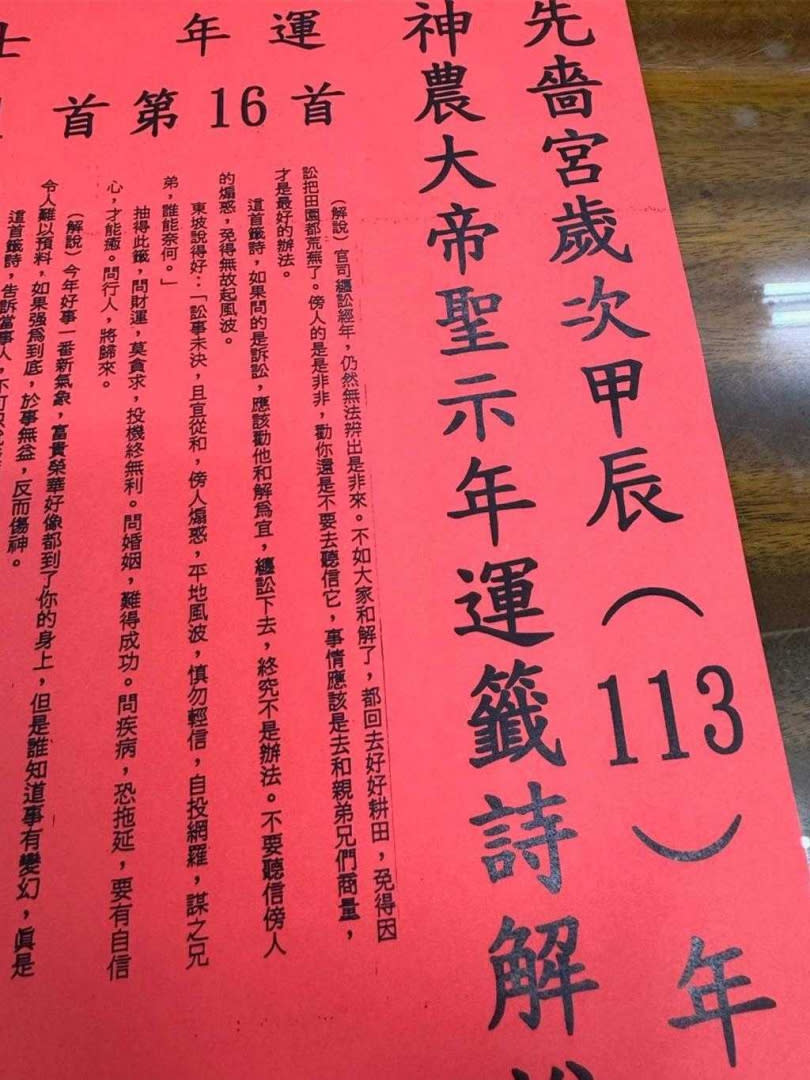 先嗇宮歲次甲辰（113）年
神農大帝聖示年運籤詩解
運年
首第16首
（解說）官司纏訟經年，仍然無法辨出是非來。不如大家和解了，都回去好好耕田，免得因
訟把田園都荒蕪了。傍人的是是非非，勸你還是不要去聽信它，事情應該是去和親弟兄們商量，
才是最好的辦法。
這首籤詩，如果問的是訴訟，應該勸他和解爲宜，纏訟下去，終究不是辦法。不要聽信傍人
的煽惑，免得無故起風波。
東坡說得好：「訟事未決，且宜從和，傍人煽惑，平地風波，慎勿輕信，自投網羅，謀之兄
弟，誰能奈何。」
抽得此籤，問財運，莫貪求，投機終無利。問婚姻，難得成功。問疾病，恐拖延，要有自信
心，才能癒。問行人，將歸來。
（解說）今年好事一番新氣象，富貴榮華好像都到了你的身上，但是誰知道事有變幻，眞是
令人難以預料，如果强爲到底，於事無益，反而傷神。
這首籤詩，告訴當事人，不可